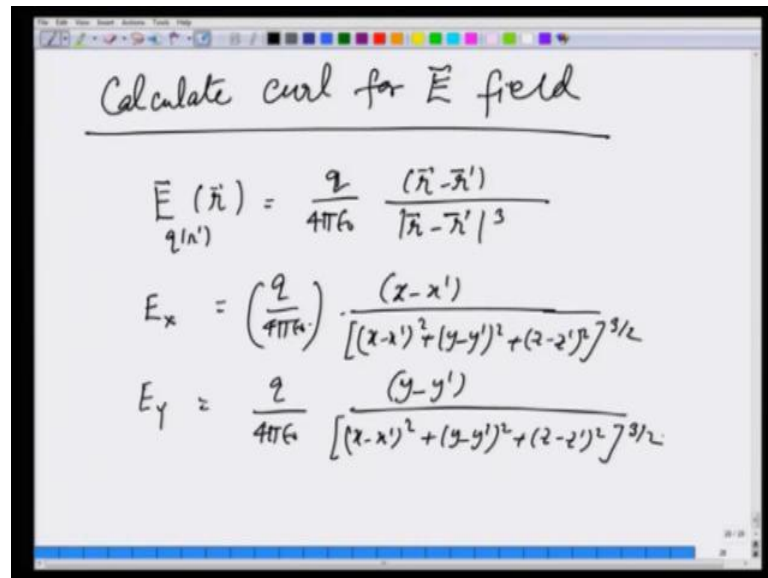 File Edit View Insert Actions Tools Help
Calculate curl for E⃗ field
E⃗ (r⃗) = q/4πε₀ (r⃗ - r⃗')/|r⃗ - r⃗'|³
q(r')
Eₓ = (q/4πε₀) · (x-x')/[(x-x')² + (y-y')² + (z-z')²]^3/2
E_y = q/4πε₀ (y-y')/[(x-x')² + (y-y')² + (z-z')²]^3/2